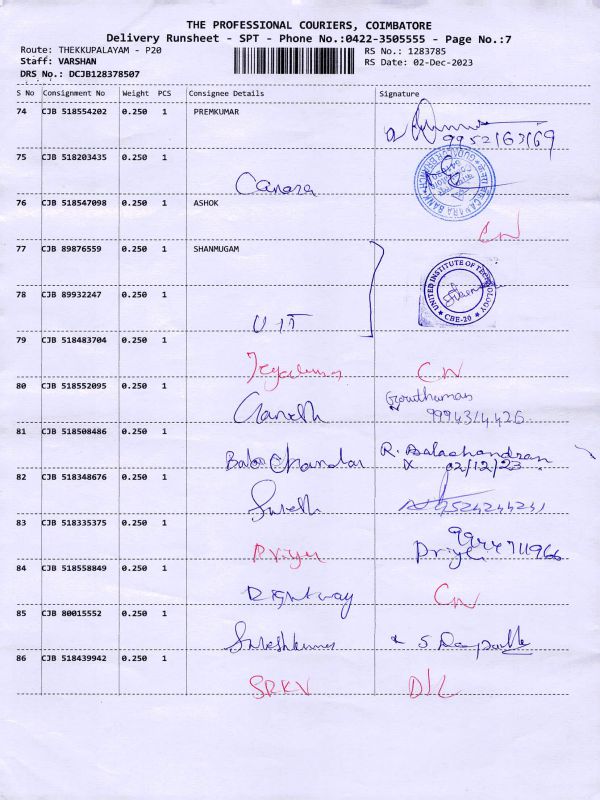 THE PROFESSIONAL COURIERS, COIMBATORE
Delivery Runsheet - SPT - Phone No.:0422-3505555 - Page No.:7
Route: THEKKUPALAYAM - P20
RS No.: 1283785
Staff: VARSHAN
RS Date: 02-Dec-2023
DRS No.: DCJB128378507
S No Consignment No Weight PCS Consignee Details Signature
74 CJB 518554202 0.250 1 PREMKUMAR
9952163169
75 CJB 518203435 0.250 1
Canara
CANARA BANK
76 CJB 518547098 0.250 1 ASHOK
CN
77 CJB 89876559 0.250 1 SHANMUGAM
UNITED INSTITUTE OF TECHNOLOGY
CBE-20
78 CJB 89932247 0.250 1
UIT
79 CJB 518483704 0.250 1
CN
80 CJB 518552095 0.250 1
Ganesh
Gowthaman
81 CJB 518508486 0.250 1
Balachandar R. Balachandran
02/12/23
82 CJB 518348676 0.250 1
Suresh 9524244241
83 CJB 518335375 0.250 1
9944711966
Priya Priya
84 CJB 518558849 0.250 1
Rightway CN
85 CJB 80015552 0.250 1
Sureshkumar
86 CJB 518439942 0.250 1
SRKV D/L